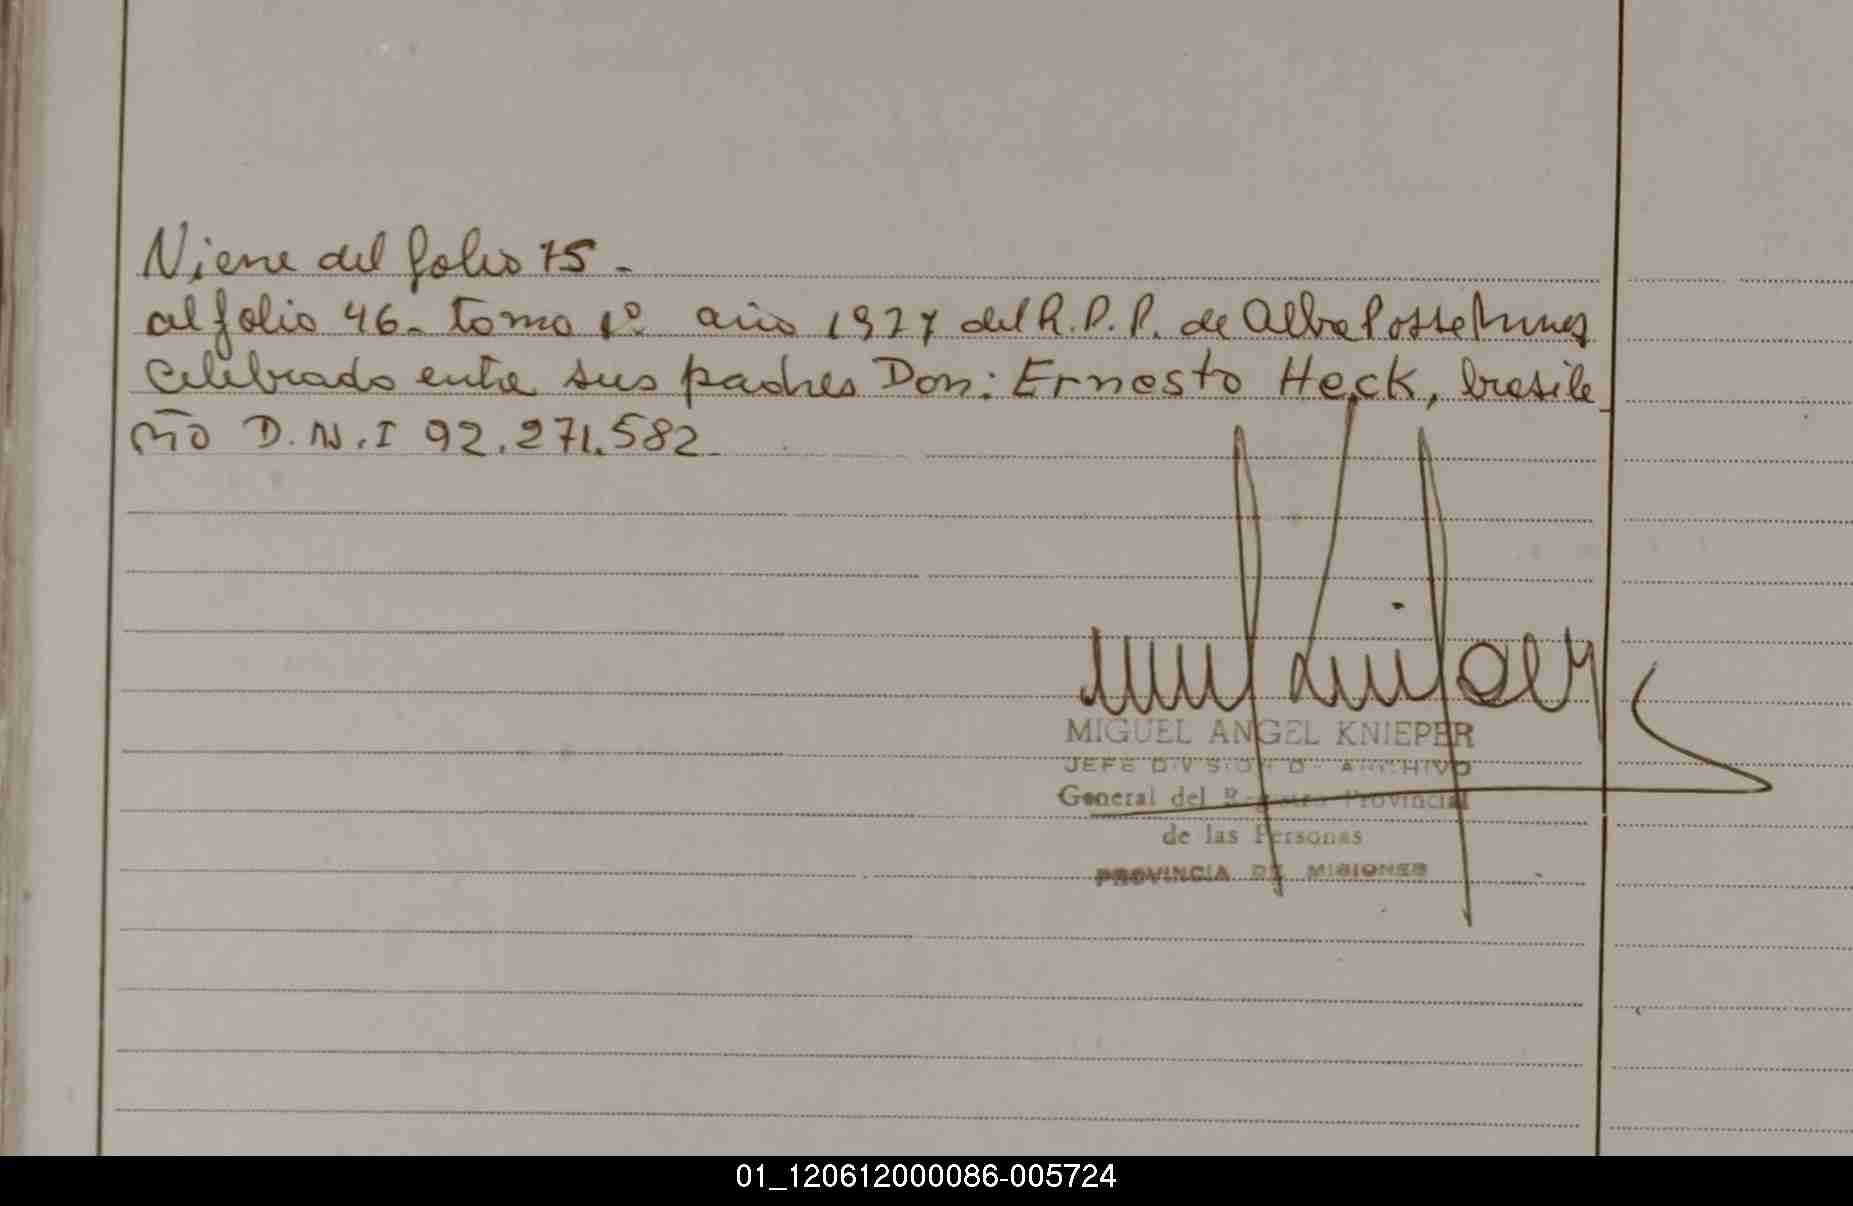 Viene del folio 75.-
al folio 46- tomo 1º año 1927 del R.P.P. de Alba Posse Mnes
Celebrado entre sus padres Don: Ernesto Heck, brasile
ño D.N.I 92.271.582-
MIGUEL ANGEL KNIEPER
JEFE DIVISION DE ARCHIVO
General del Registro Provincial
de las Personas
PROVINCIA DE MISIONES
01_120612000086-005724